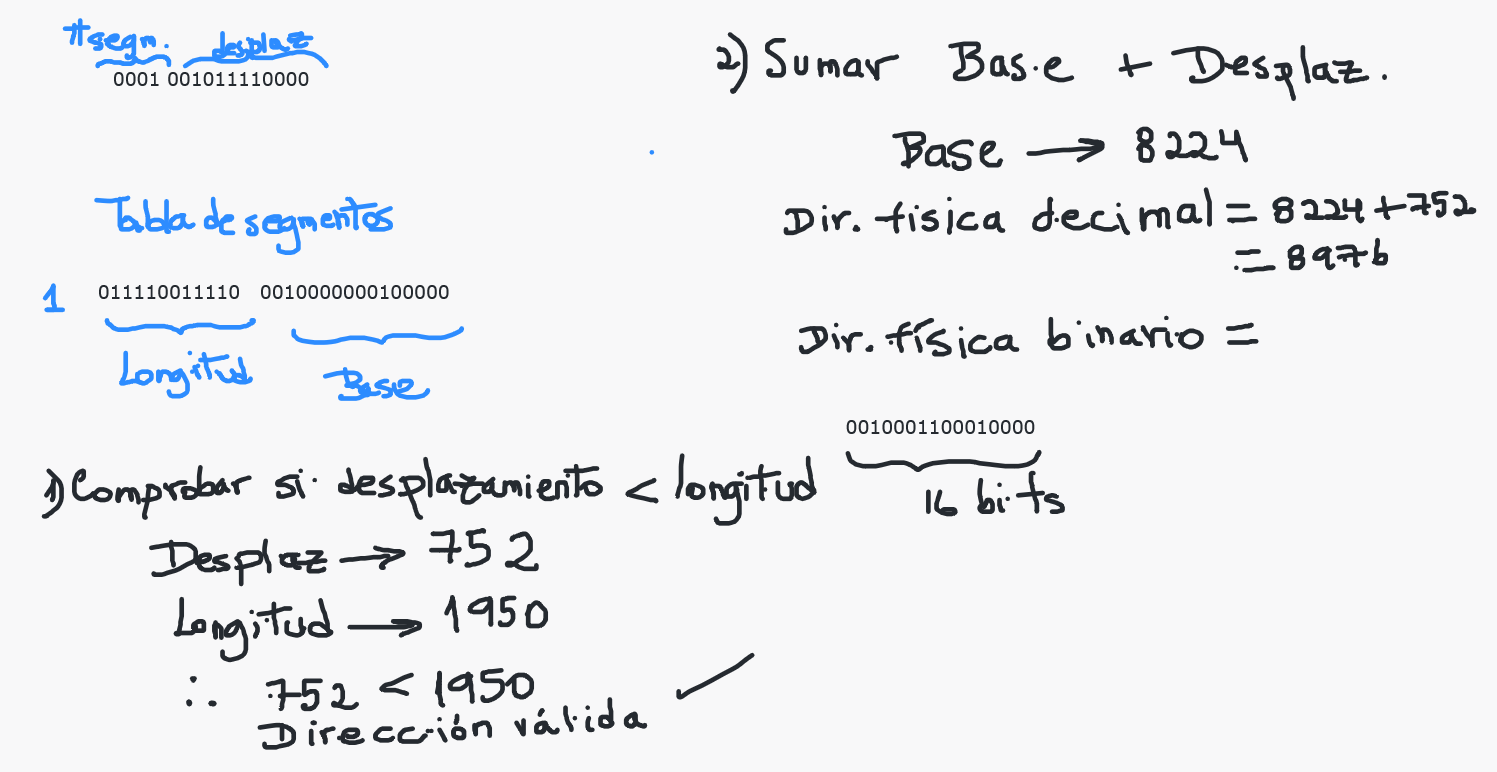 #segm. desplaz
0001 001011110000
Tabla de segmentos
1 011110011110 0010000000100000
Longitud Base
1) Comprobar si desplazamiento < longitud
Desplaz → 752
Longitud → 1950
∴ 752 < 1950 ✓
Dirección válida
2) Sumar Base + Desplaz.
Base → 8224
Dir. física decimal = 8224+752
= 8976
Dir. física binario =
0010001100010000
16 bits